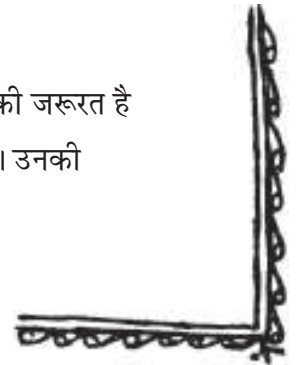 की जरूरत है
। उनकी